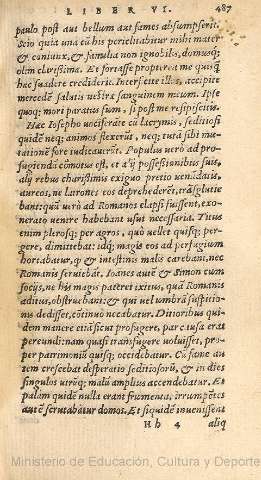 LIBER VI. 487
paulo post aut bellum aut fames absumpserit.
Scio quia una cũ his periclitabitur mihi mater
& coniunx, & familia non ignobilis, domusq;
olim clarissima. Et fortasse propterea me quisq;
hæc suadere crediderit. Interficite illas, accipite
mercedẽ salutis vestræ sanguinem meum. Ipse
quoq; mori paratus sum, si post me resipiscitis.
Hæc Iosepho vociferãte cũ lacrymis, seditiosi
quidẽ neq; animos flexerũt, neq; tutã sibi mu-
tationẽ fore iudicarũt. Populus verò ad pro-
fugiendũ cõmotus est, et alij possessionibus suis,
alij rebus charissimis exiguo pretio venũdatis,
aureos, ne latrones eos deprehẽderẽt, trãsglutie
bant: quũ verò ad Romanos elapsi fuissent, exo-
nerato ventre habebant usui necessaria. Titus
enim plerosq; per agros, quò vellet quisq; per-
gere, dimittebat: idq; magis eos ad perfugium
hortabatur, q̃ & intestinis malis carebant, nec
Romanis seruiebãt. Ioanes autẽ & Simon cum
socijs, ne his magis pateret exitus, quã Romanis
aditus, obstruebant: & qui vel umbrã suspitio-
nis dedisset, cõtinuò necabatur. Ditioribus qui-
dem manere etiã sicut profugere, par causa erat
pereundi: nam quasi transfugere voluisset, pro-
per patrimoniũ quisq; occidebatur. Cũ fame au
tem crescebat desperatio seditiosorũ, & in dies
singulos utrũq; malũ amplius accendebatur. Et
palàm quidẽ nulla erant frumenta, irrumpẽtes
autẽ scrutabãtur domos. Et siquidẽ inuenissent
Hh 4 aliq
Ministerio de Educación, Cultura y Deporte